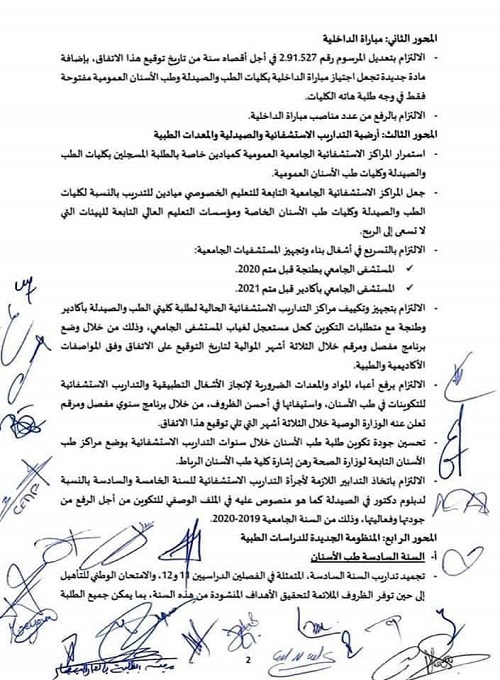 المحور الثاني: مباراة الداخلية
- الالتزام بتعديل المرسوم رقم 2.91.527 في أجل أقصاه سنة من تاريخ توقيع هذا الاتفاق، بإضافة
مادة جديدة تجعل اجتياز مباراة الداخلية بكليات الطب والصيدلة وطب الأسنان العمومية مفتوحة
فقط في وجه طلبة هاته الكليات.
- الالتزام بالرفع من عدد مناصب مباراة الداخلية.
المحور الثالث: أرضية التداريب الاستشفائية والصيدلية والمعدات الطبية
- استمرار المراكز الاستشفائية الجامعية العمومية كميادين خاصة بالطلبة المسجلين بكليات الطب
والصيدلة وكليات طب الأسنان العمومية.
- جعل المراكز الاستشفائية الجامعية التابعة للتعليم الخصوصي ميادين للتدريب بالنسبة لكليات
الطب والصيدلة وكليات طب الأسنان الخاصة ومؤسسات التعليم العالي التابعة للهيئات التي
لا تسعى إلى الربح.
- الالتزام بالتسريع في أشغال بناء وتجهيز مستشفيات الجامعية:
✓ المستشفى الجامعي بطنجة قبل متم 2020.
✓ المستشفى الجامعي بأكادير قبل متم 2021.
- الالتزام بتجهيز وتكييف مراكز التداريب الاستشفائية الحالية لطلبة كليتي الطب والصيدلة بأكادير
وطنجة مع متطلبات التكوين كحل مستعجل لغياب المستشفى الجامعي، وذلك من خلال وضع
برنامج مفصل ومرقم خلال الثلاثة أشهر الموالية لتاريخ التوقيع على الاتفاق وفق المواصفات
الأكاديمية والطبية.
- الالتزام برفع أعباء المواد والمعدات الضرورية لإنجاز الأشغال التطبيقية والتداريب الاستشفائية
للتكوينات في طب الأسنان، واستيفائها في أحسن الظروف، من خلال برنامج سنوي مفصل ومرقم
تعلن عنه الوزارة الوصية خلال الثلاثة أشهر التي تلي توقيع هذا الاتفاق.
- تحسين جودة تكوين طلبة طب الأسنان خلال سنوات التداريب الاستشفائية بوضع مراكز طب
الأسنان التابعة لوزارة الصحة رهن إشارة كلية طب الأسنان الرباط.
- الالتزام باتخاذ التدابير اللازمة لأجرأة التداريب الاستشفائية للسنة الخامسة والسادسة بالنسبة
لدبلوم دكتور في الصيدلة كما هو منصوص عليه في الملف الوصفي للتكوين من أجل الرفع من
جودتها وفعاليتها، وذلك من السنة الجامعية 2019-2020.
المحور الرابع: المنظومة الجديدة للدراسات الطبية
أ- السنة السادسة طب الأسنان
- تجميد تداريب السنة السادسة، المتمثلة في الفصلين الدراسيين 11 و12، والامتحان الوطني للتأهيل
إلى حين توفر الظروف الملائمة لتحقيق الأهداف المنشودة من هذه السنة، بما يمكن جميع الطلبة
2